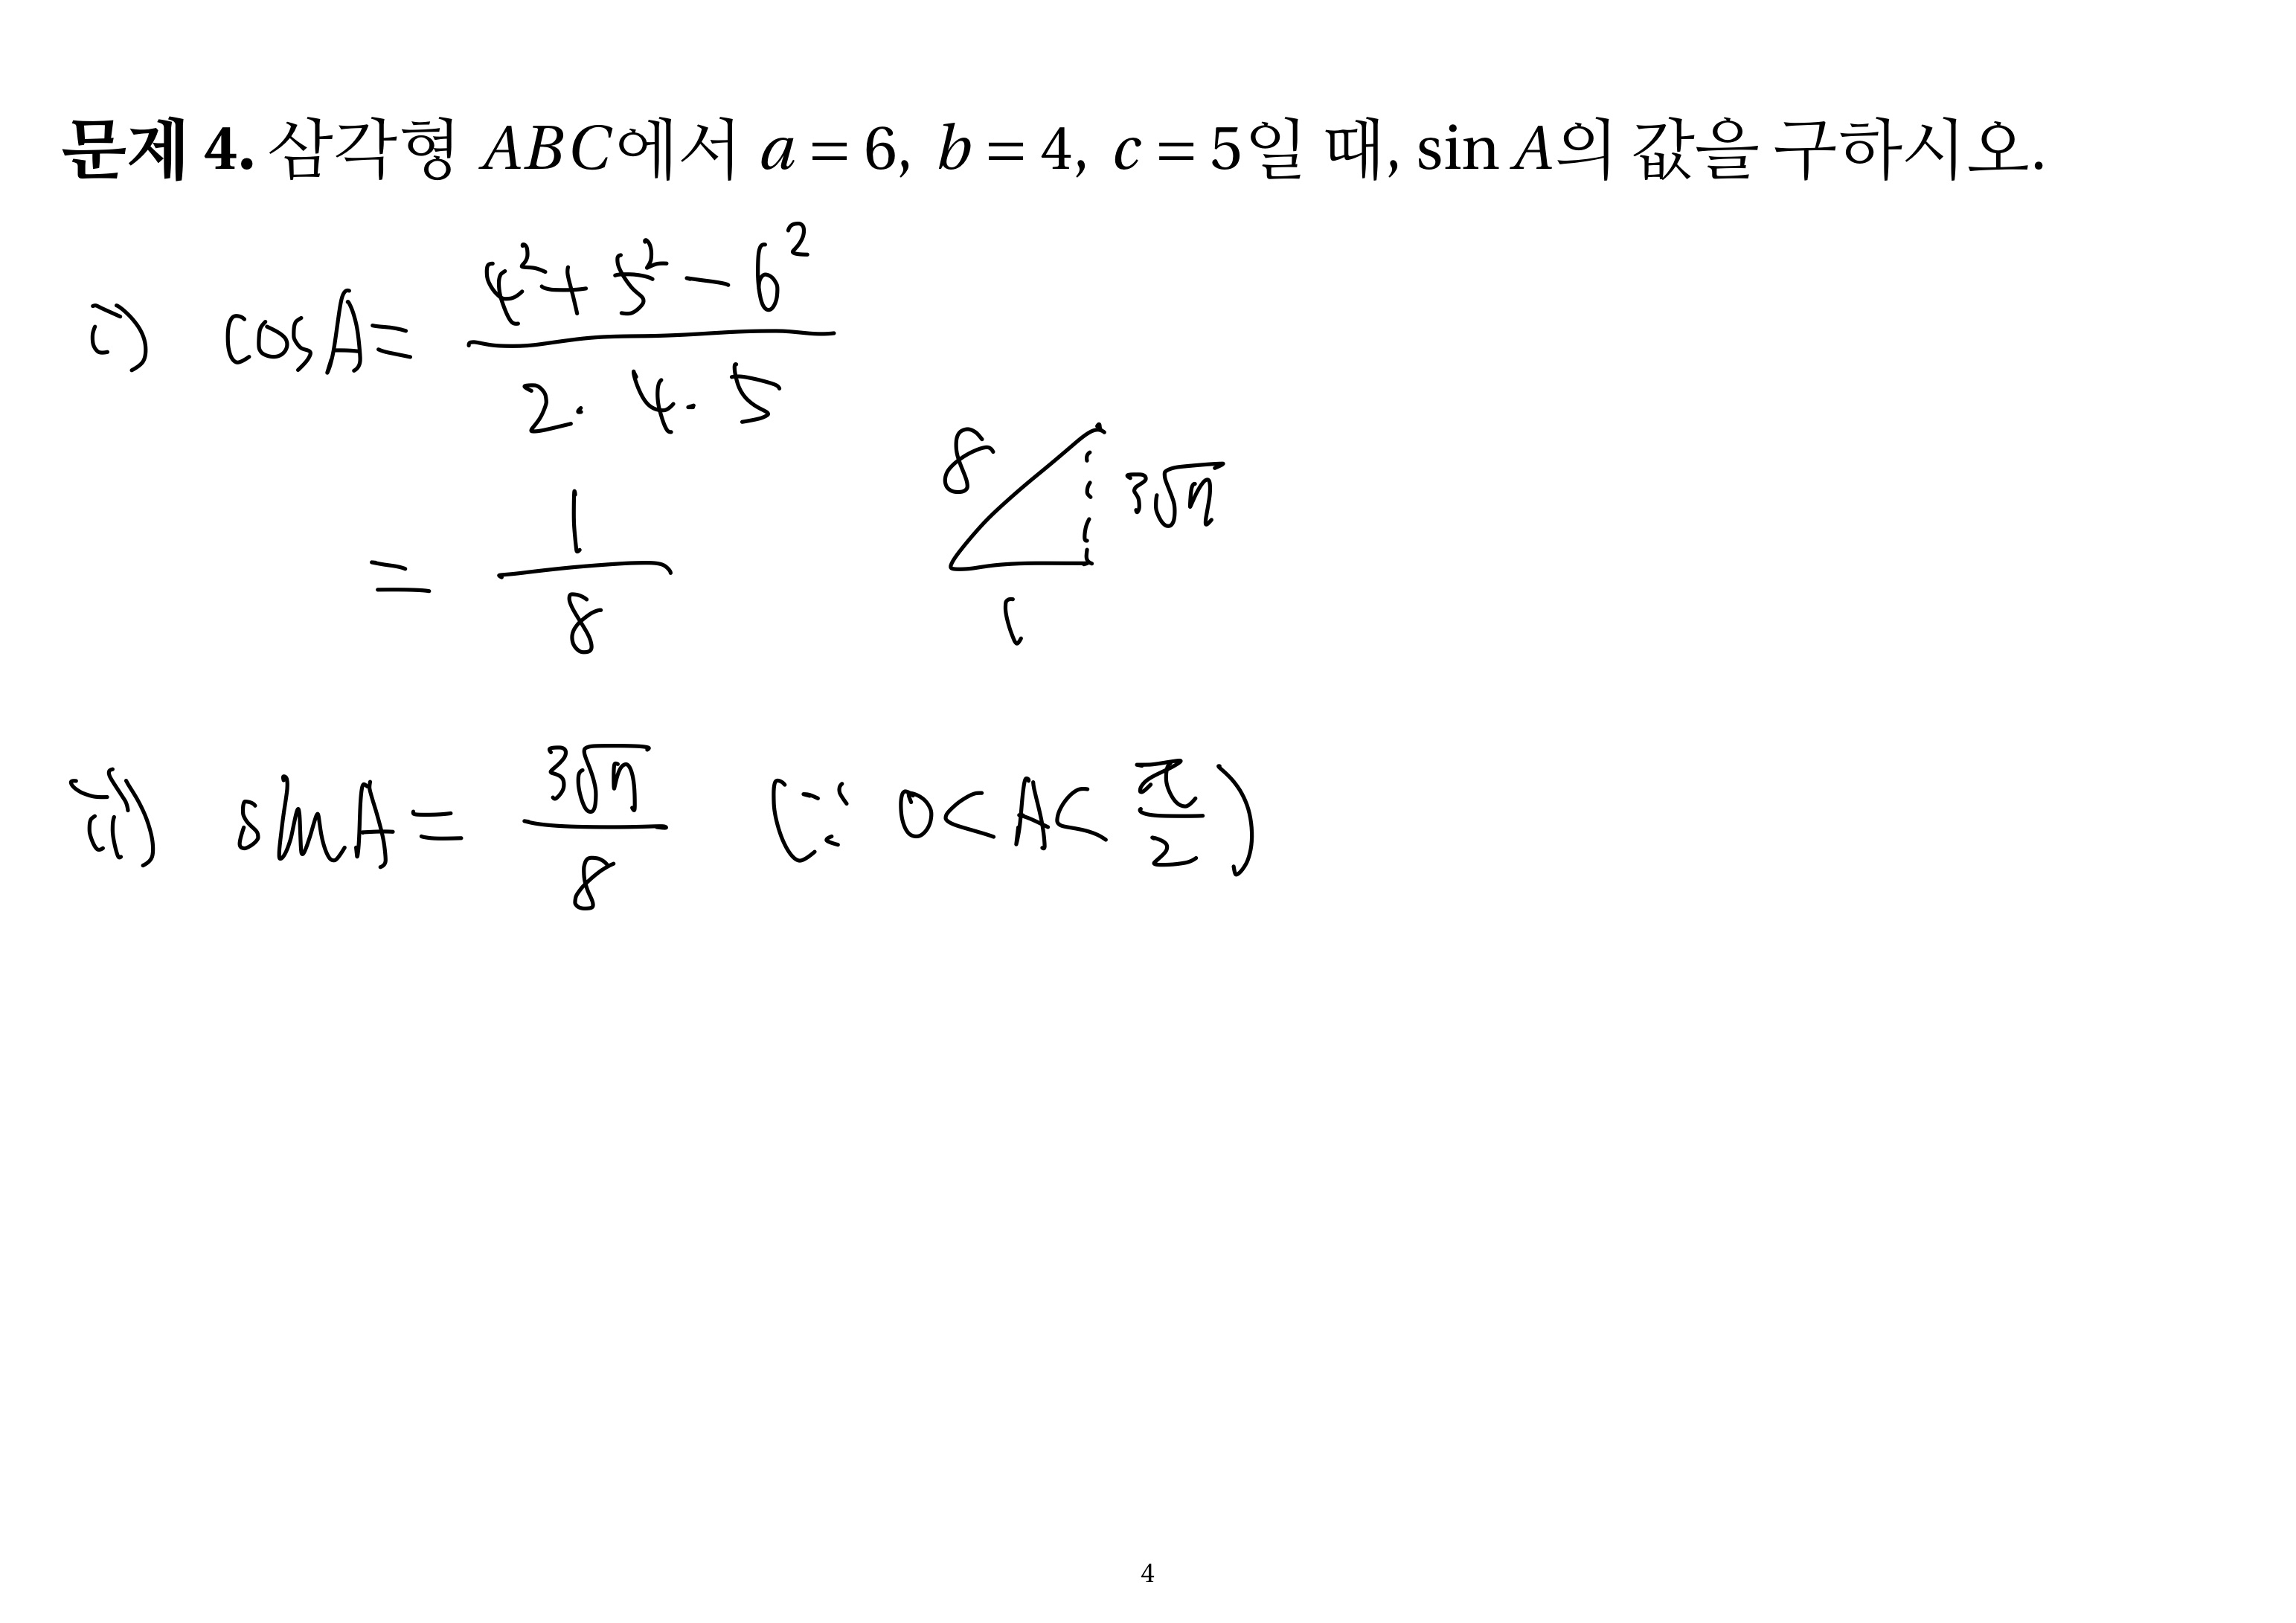 문제 4. 삼각형 ABC에서 a = 6, b = 4, c = 5일 때, sin A의 값을 구하시오.
i) cosA = (4² + 5² − 6²) / (2 · 4 · 5)
= 1/8
8 3√7
1
ii) sinA = 3√7/8 (∵ 0 < A < π/2)
4